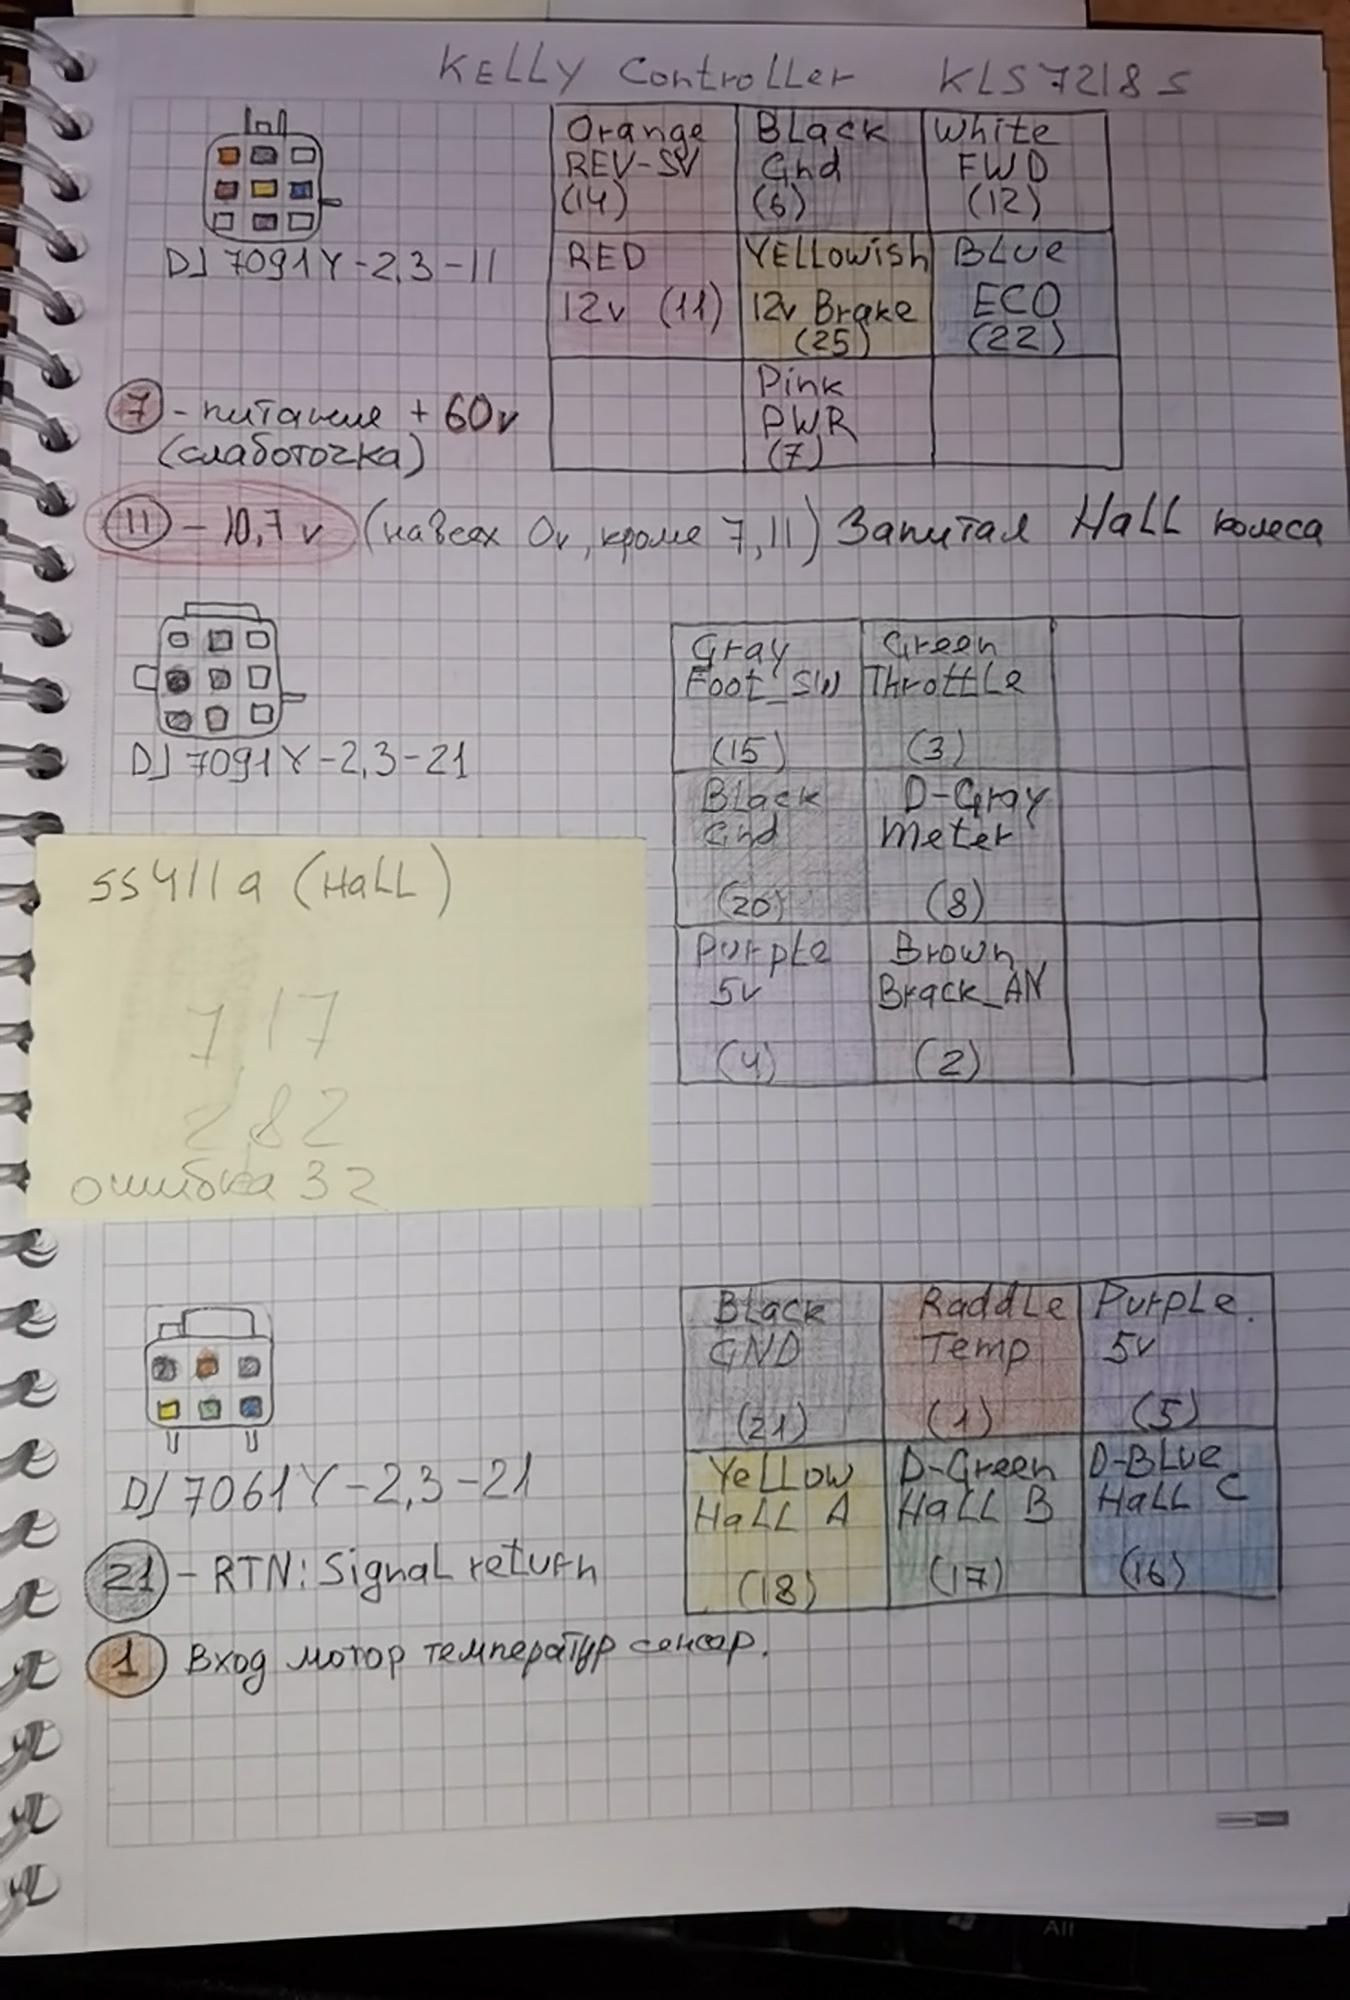 KELLY Controller KLS7218S
Orange
REV-SV
(14)
BLack
Gnd
(6)
White
FWD
(12)
RED
12v (11)
YELLowish
12v Brake
(25)
BLue
ECO
(22)
Pink
PWR
(7)
DJ 7091Y-2,3-11
7 - питание + 60v
(слаботочка)
11 - 10,7v (на всех 0v, кроме 7,11) Запитал HaLL колеса
Gray
Foot_SW
(15)
Green
ThrottLe
(3)
BLack
Gnd
(20)
D-Gray
meter
(8)
PurpLe
5v
(4)
Brown
Brack_AN
(2)
DJ 7091Y-2,3-21
SS411a (HaLL)
717
282
ошибка 32
BLack
GND
(21)
RaddLe
Temp
(1)
PurpLe.
5v
(5)
YeLLow
HaLL A
(18)
D-Green
HaLL B
(17)
D-BLue
HaLL C
(16)
DJ 7061Y-2,3-21
21 - RTN: SignaL return
1 Вход мотор температур сенсор.
All